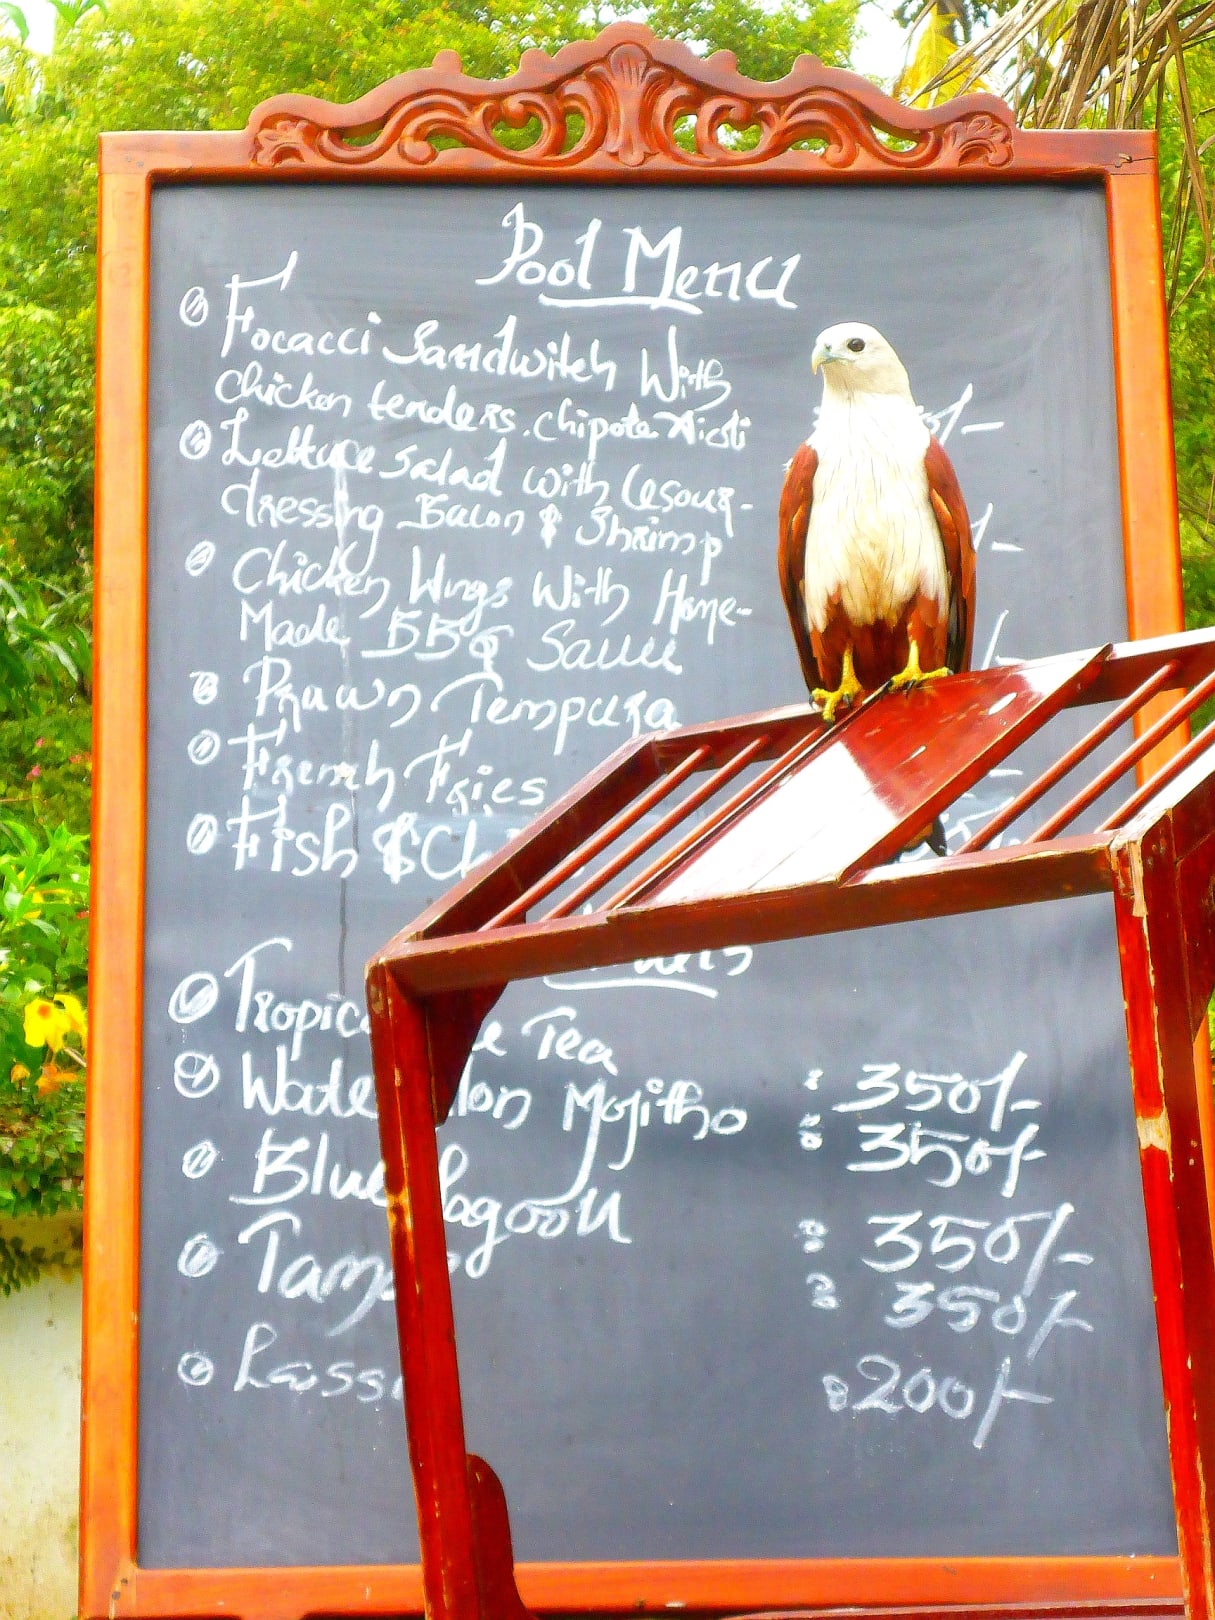 Pool Menu
Focacci Sandwitch With
chicken tenders. chipote
Lettuce salad with
dressing Bacon & Shrimp
Chicken Wings With Home-
Made BBQ Sauce
Prawn Tempura
French Fries
Fish &
Tea
Mojitho : 350/-
: 350/-
Blue Lagoon : 350/-
: 350/-
Lassi : 200/-